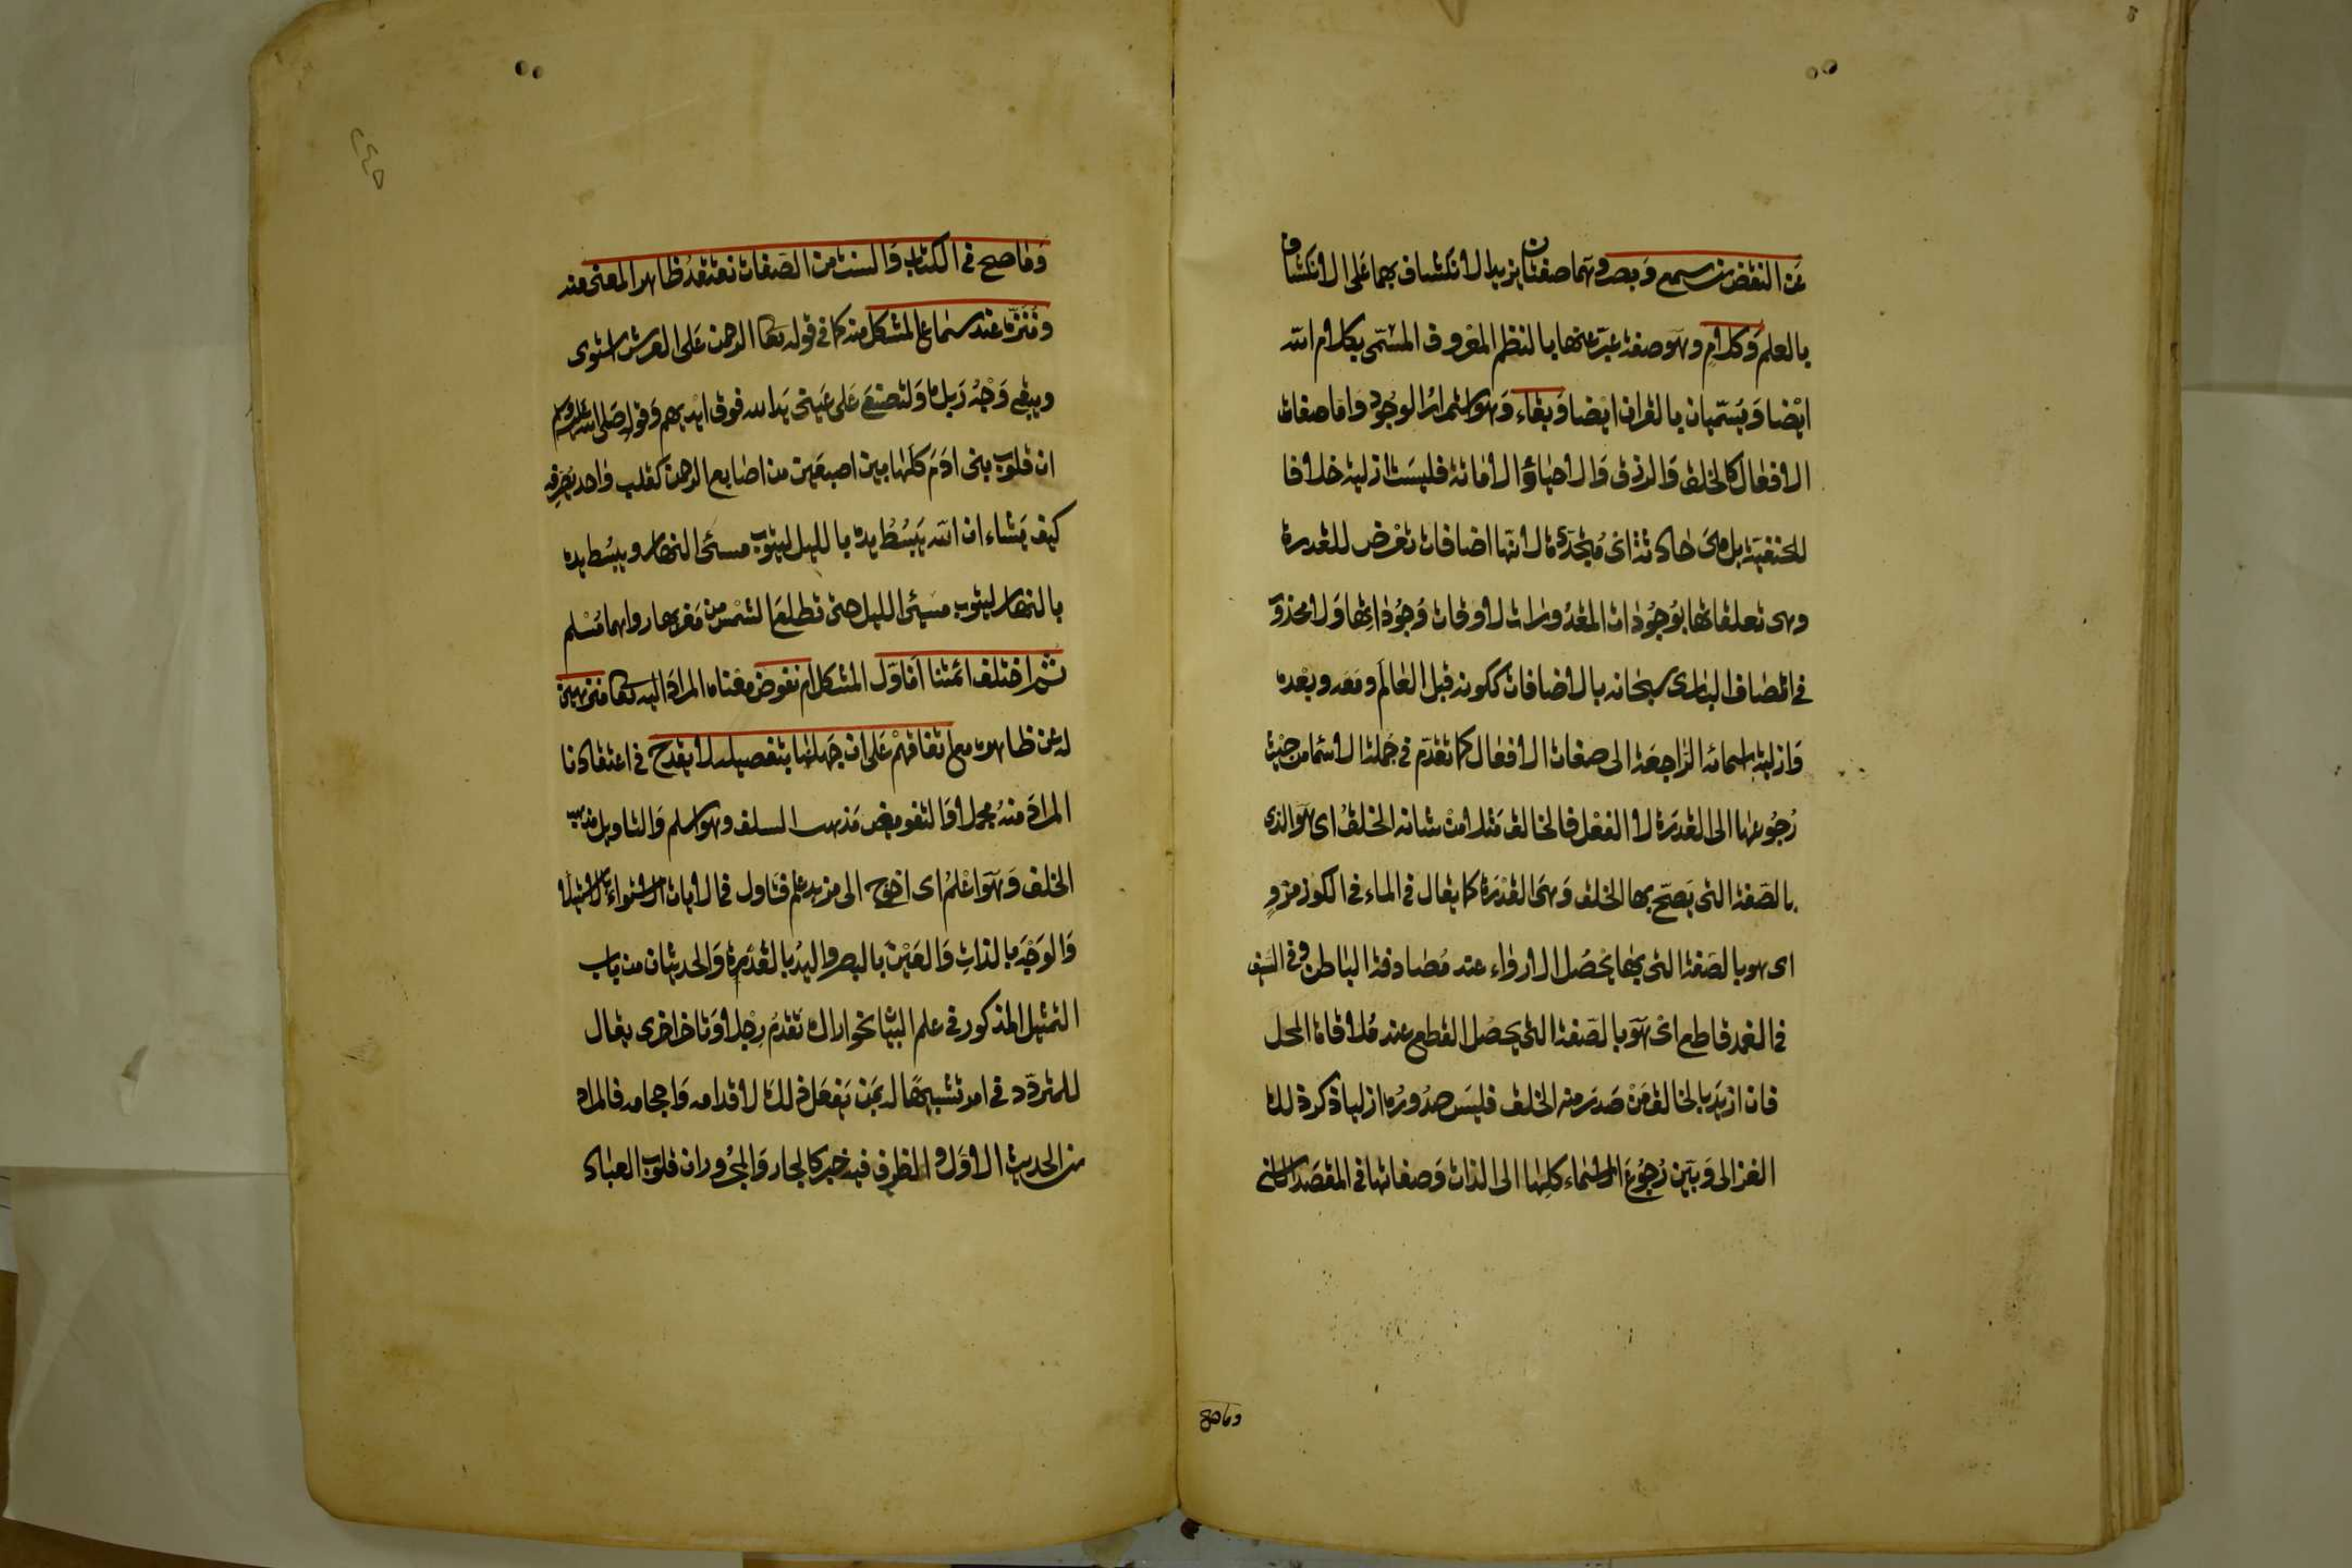 عن النقض من سمع وبصر وهما صفتان يزيد الانكشاف بهما على الانكشاف
بالعلم وكلام وهو صفة عبر عنها بالنظم المعروف المسمى بكلام الله
ايضا ويسميان بالقران ايضا وبقاء وهو استمرار الوجود واما صفات
الافعال كالخلق والرزق والاحياء والاماتة فليست ازلية خلافا
للحنفية بل هى حادثة اى متجددة لانها اضافات تعرض للقدرة
وهى تعلقاتها بوجودات المقدورات لاوقات وجوداتها ولا محذور
فى اتصاف البارى سبحانه بالاضافات ككونه قبل العالم ومعه وبعده
وازلية اسمائه الراجعة الى صفات الافعال كما تقدم فى جملة الاسما من حيث
رجوعها الى القدرة لا الفعل فالخالق مثلا من شانه الخلق اى هو الذى
بالصفة التى يصح بها الخلق وهى القدرة كما يقال فى الماء فى الكوز مرو
اى هو بالصفة التى بها يحصل الارواء عند مصادفة الباطن وفى السيف
فى الغمد قاطع اى هو بالصفة التى يحصل القطع عند ملاقاة المحل
فان اريد بالخالق من صدر منه الخلق فليس صدوره ازليا ذكر ذلك
الغزالى وبين رجوع الاسماء كلها الى الذات وصفاتها فى المقصد الاسنى
وما صح
وما صح فى الكتاب والسنة من الصفات نعتقد ظاهر المعنى منه
وننزه عند سماع المشكل منه كما فى قوله تعا الرحمن على العرش استوى
ويبقى وجه ربك ولتصنع على عينى يد الله فوق ايديهم وقوله صلى الله عليه وسلم
ان قلوب بنى ادم كلها بين اصبعين من اصابع الرحمن كقلب واحد يصرفه
كيف يشاء ان الله يبسط يده بالليل ليتوب مسئ النهار ويبسط يده
بالنهار ليتوب مسيئ الليل حتى تطلع الشمس من مغربها رواهما مسلم
ثم اختلف ائمتنا اناول المشكل ام نفوض معناه المراد اليه تعا منزهين
له عن ظاهره مع اتفاقهم على ان جهلنا بتفصيله لا يقدح فى اعتقادنا
المراد منه مجملا والتفويض مذهب السلف وهو اسلم والتاويل مذهب
الخلف وهو اعلم اى احوج الى مزيد علم فتاول فى الايات الاستواء بالاستيلا
والوجه بالذات والعين بالبصر واليد بالقدرة والحديثان من باب
التمثيل المذكور فى علم البيان نحو اراك تقدم رجلا وتاخر اخرى يقال
للمتردد فى امر تشبيها له بمن يفعل ذلك لاقدامه واحجامه فالمراد
من الحديث الاول والظرف فيه خبر كالجار والمجرور ان قلوب العباد